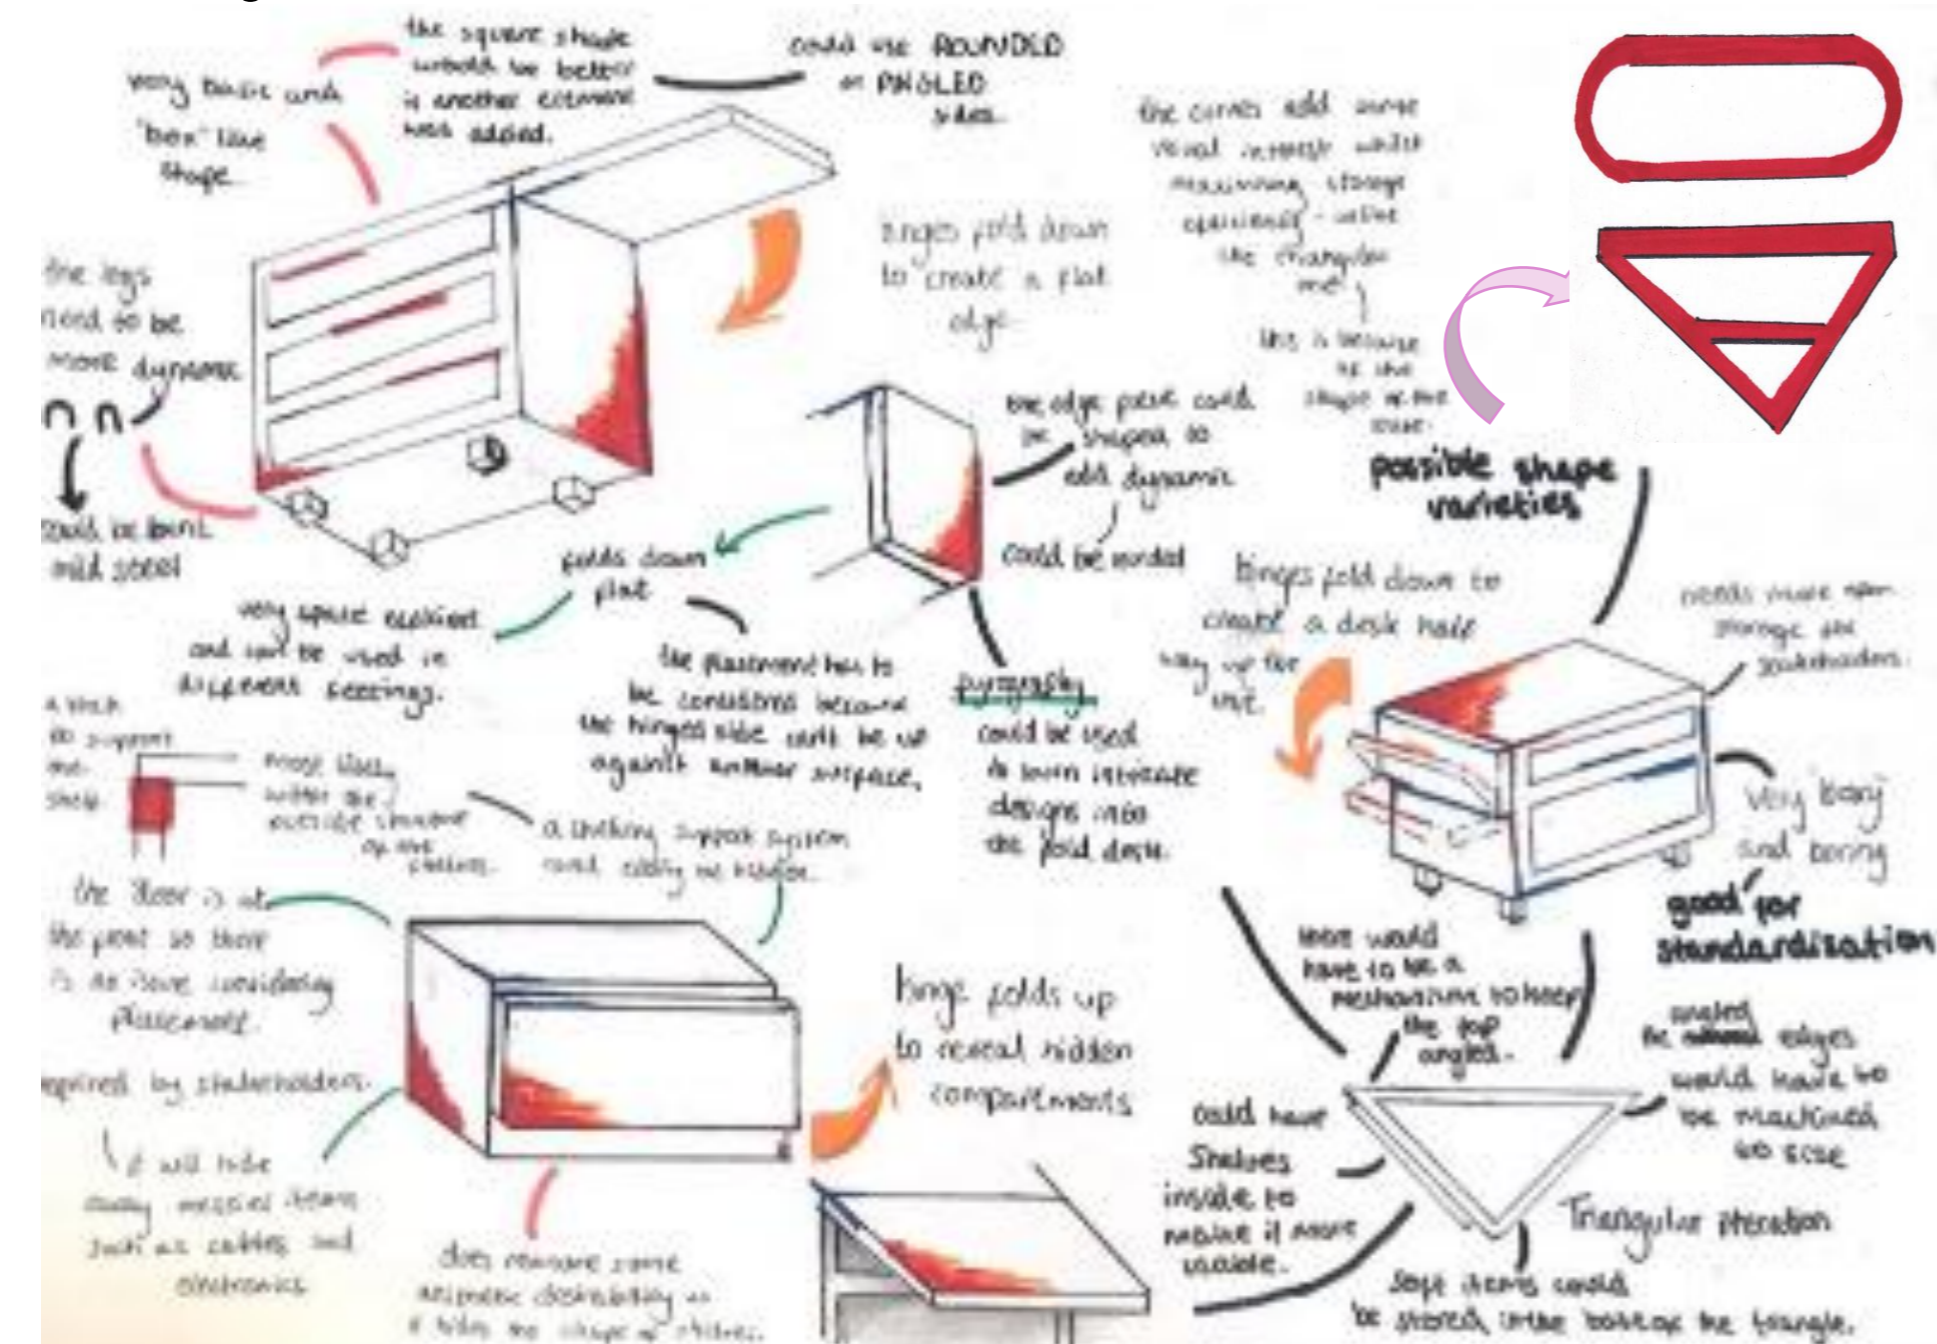 very basic and
"box" like
shape
the square shape
would be better
is another element
was added.
could use ROUNDED
or ANGLED
sides.
the curves add some
visual interest whilst
maximising storage
efficiency - unlike
the triangular
me
this is because
of the
shape of the
the legs
need to be
more dynamic
could be bent
mild steel
hinges fold down
to create a flat
edge.
the edge piece could
be shaped to
add dynamic
could be
folds down
flat
very space efficient
and can be used in
different settings.
the placement has to
be considered because
the hinged side can't be up
against another surface.
pyrography
could be used
to burn intricate
designs into
the fold desk.
possible shape
varieties
hinges fold down to
create a desk half
way up the
unit.
needs more open
storage for
stakeholders.
very 'boxy'
and boring
good for
standardisation
a block
to support
the
shelf.
most likely
within the
outside structure
of the
shelves.
a shelving support system
could
the door is at
the front so there
is no issue considering
placement.
required by stakeholders.
it will hide
away messier items
such as cables and
electronics
does remove some
aesthetic desirability as
it hides the shape of
hinge folds up
to reveal hidden
compartments
there would
have to be a
mechanism to keep
the top
angled.
angled
the edges
would have to
be machined
to size
could have
shelves
inside to
make it more
usable.
Triangular iteration
soft items could
be stored in the bottom of the triangle.